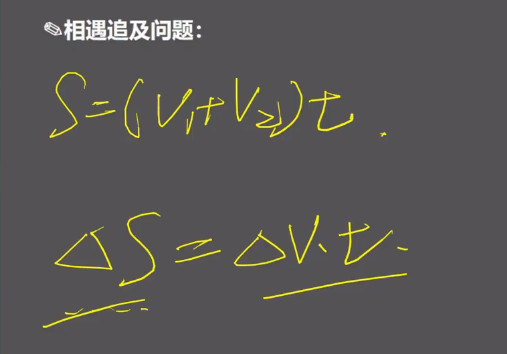 ✎相遇追及问题：
S=(V₁+V₂)t.
ΔS=ΔV·t.